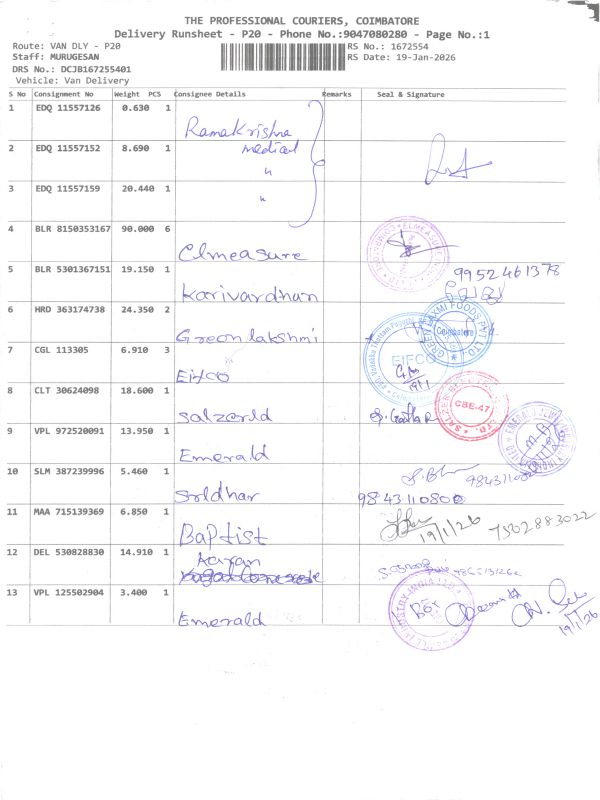 THE PROFESSIONAL COURIERS, COIMBATORE
Delivery Runsheet - P20 - Phone No.:9047080280 - Page No.:1
Route: VAN DLY - P20
Staff: MURUGESAN
DRS No.: DCJB167255401
Vehicle: Van Delivery
RS No.: 1672554
RS Date: 19-Jan-2026
S No Consignment No Weight PCS Consignee Details Remarks Seal & Signature
1 EDQ 11557126 0.630 1 Ramakrishna
2 EDQ 11557152 8.690 1 medical
3 EDQ 11557159 20.440 1 "
4 BLR 8150353167 90.000 6 Elmeasure
5 BLR 5301367151 19.150 1 Karivardhan 9952461378
6 HRD 363174738 24.350 2 Green lakshmi GREEN LAXMI FOODS PVT LTD. Coimbatore
7 CGL 113305 6.910 3 Eifco EIFCO 19/1
8 CLT 30624098 18.600 1 Salzerld CBE-47
9 VPL 972520091 13.950 1 Emerald
10 SLM 387239996 5.460 1 Sridhar 9843110800
11 MAA 715139369 6.850 1 Baptist 19/1/26 7502883022
12 DEL 530828830 14.910 1 Aaran
13 VPL 125502904 3.400 1 Emerald Box 19/1/26